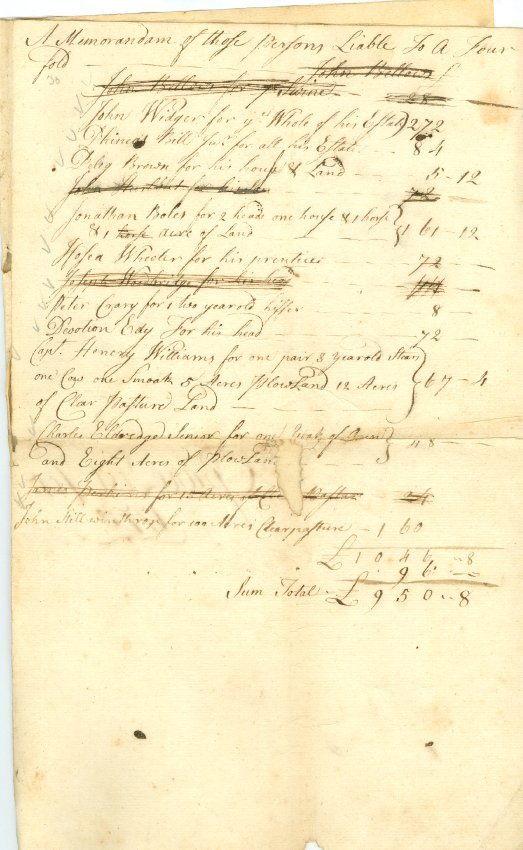 A Memorandam of those Persons Liable To A Four
fold
John Bellows
John Bellows for
John Widger for ye Whole of his Estate 272
Phineas Bill for all his Estate 84
Brown for his house & Land 5-12
Jonathan Boles for 2 heads one house & 1 horse
& 1 horse acre of Land 61-12
Hosea Wheeler for his prentice 72
for his head
Peter Crary for 1 two year old hiffer 8
Devotion Edy For his head 72
Capt. Henery Williams for one pair 3 year old Stears
one Cow one Smoak 5 Acres Plow Land 12 Acres 67-4
of Clar Pasture Land
Charles Eldredge Senior for one Yoak of Oxen 48
and Eight Acres of Plow Land
James Perkins for Acres of Pastur 24
John Still winthrop for 100 Acres Clear pasture 160
£1046"8
96
Sum Total £950"8